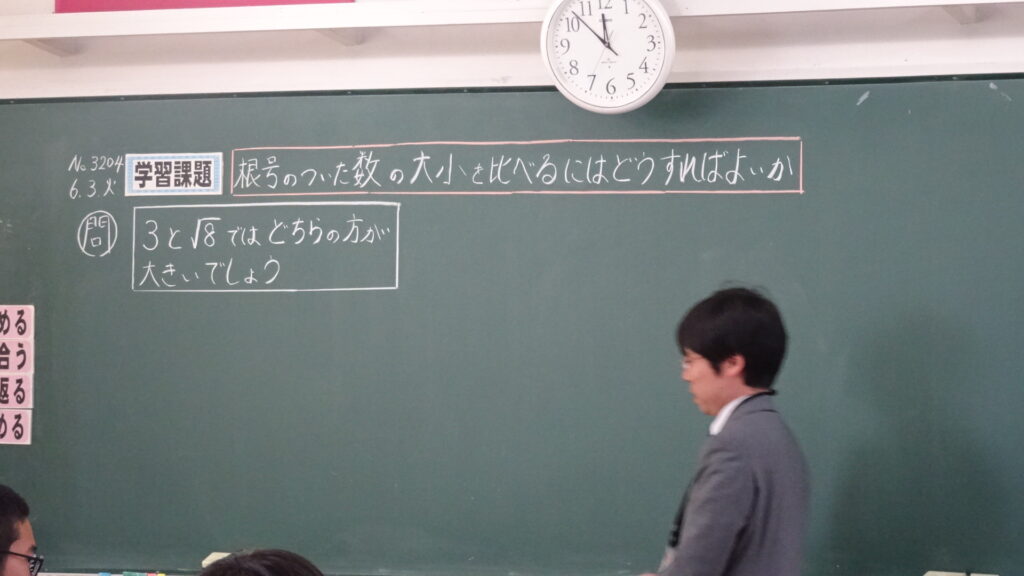 12
11
1
10
2
9
3
8
4
7
5
6
No.3204
6.3.火
学習課題
根号のついた数の大小を比べるにはどうすればよいか
問
3と√8ではどちらの方が
大きいでしょう
める
合う
返る
める